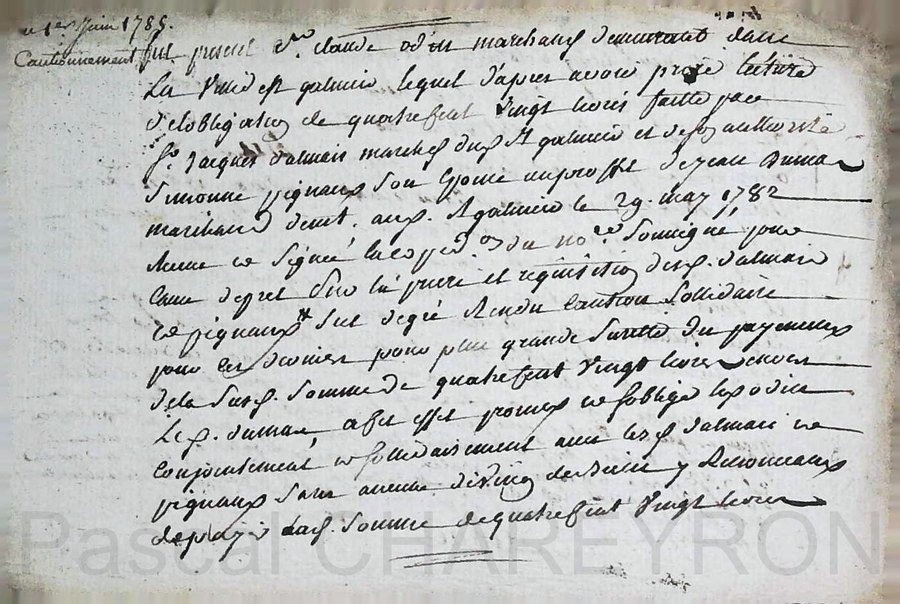 1er Juin 1785.
Cautionnement
fut present Sr claude odin marchand demeurant dans
La Ville de St galmier lequel d'apres avoir prise lecture
de l'obligation de quatre cent vingt livres faitte par
Sr Jacques dalmais marchand dud St galmier et de son authorité
Simonne pignaux Son Epouse au proffit de jean
marchand demt. aud. St galmier le 29. may 1782
Reçue et Signée du nore Soussigné
Sur la priere et requisition desd. dalmais
et pignaux S'est Rendu Caution Sollidaire
pour ces derniers pour plus grande Suretté du payement
de la Susd. Somme de quatre cent Vingt livres envers
Led. a cet effet promet et s'oblige led odin
conjointement et sollidairement avec lesd dalmais et
pignaux Sans aucune division y Renonceant
de payer lad. Somme de quatre cent Vingt livres
Pascal CHAREYRON